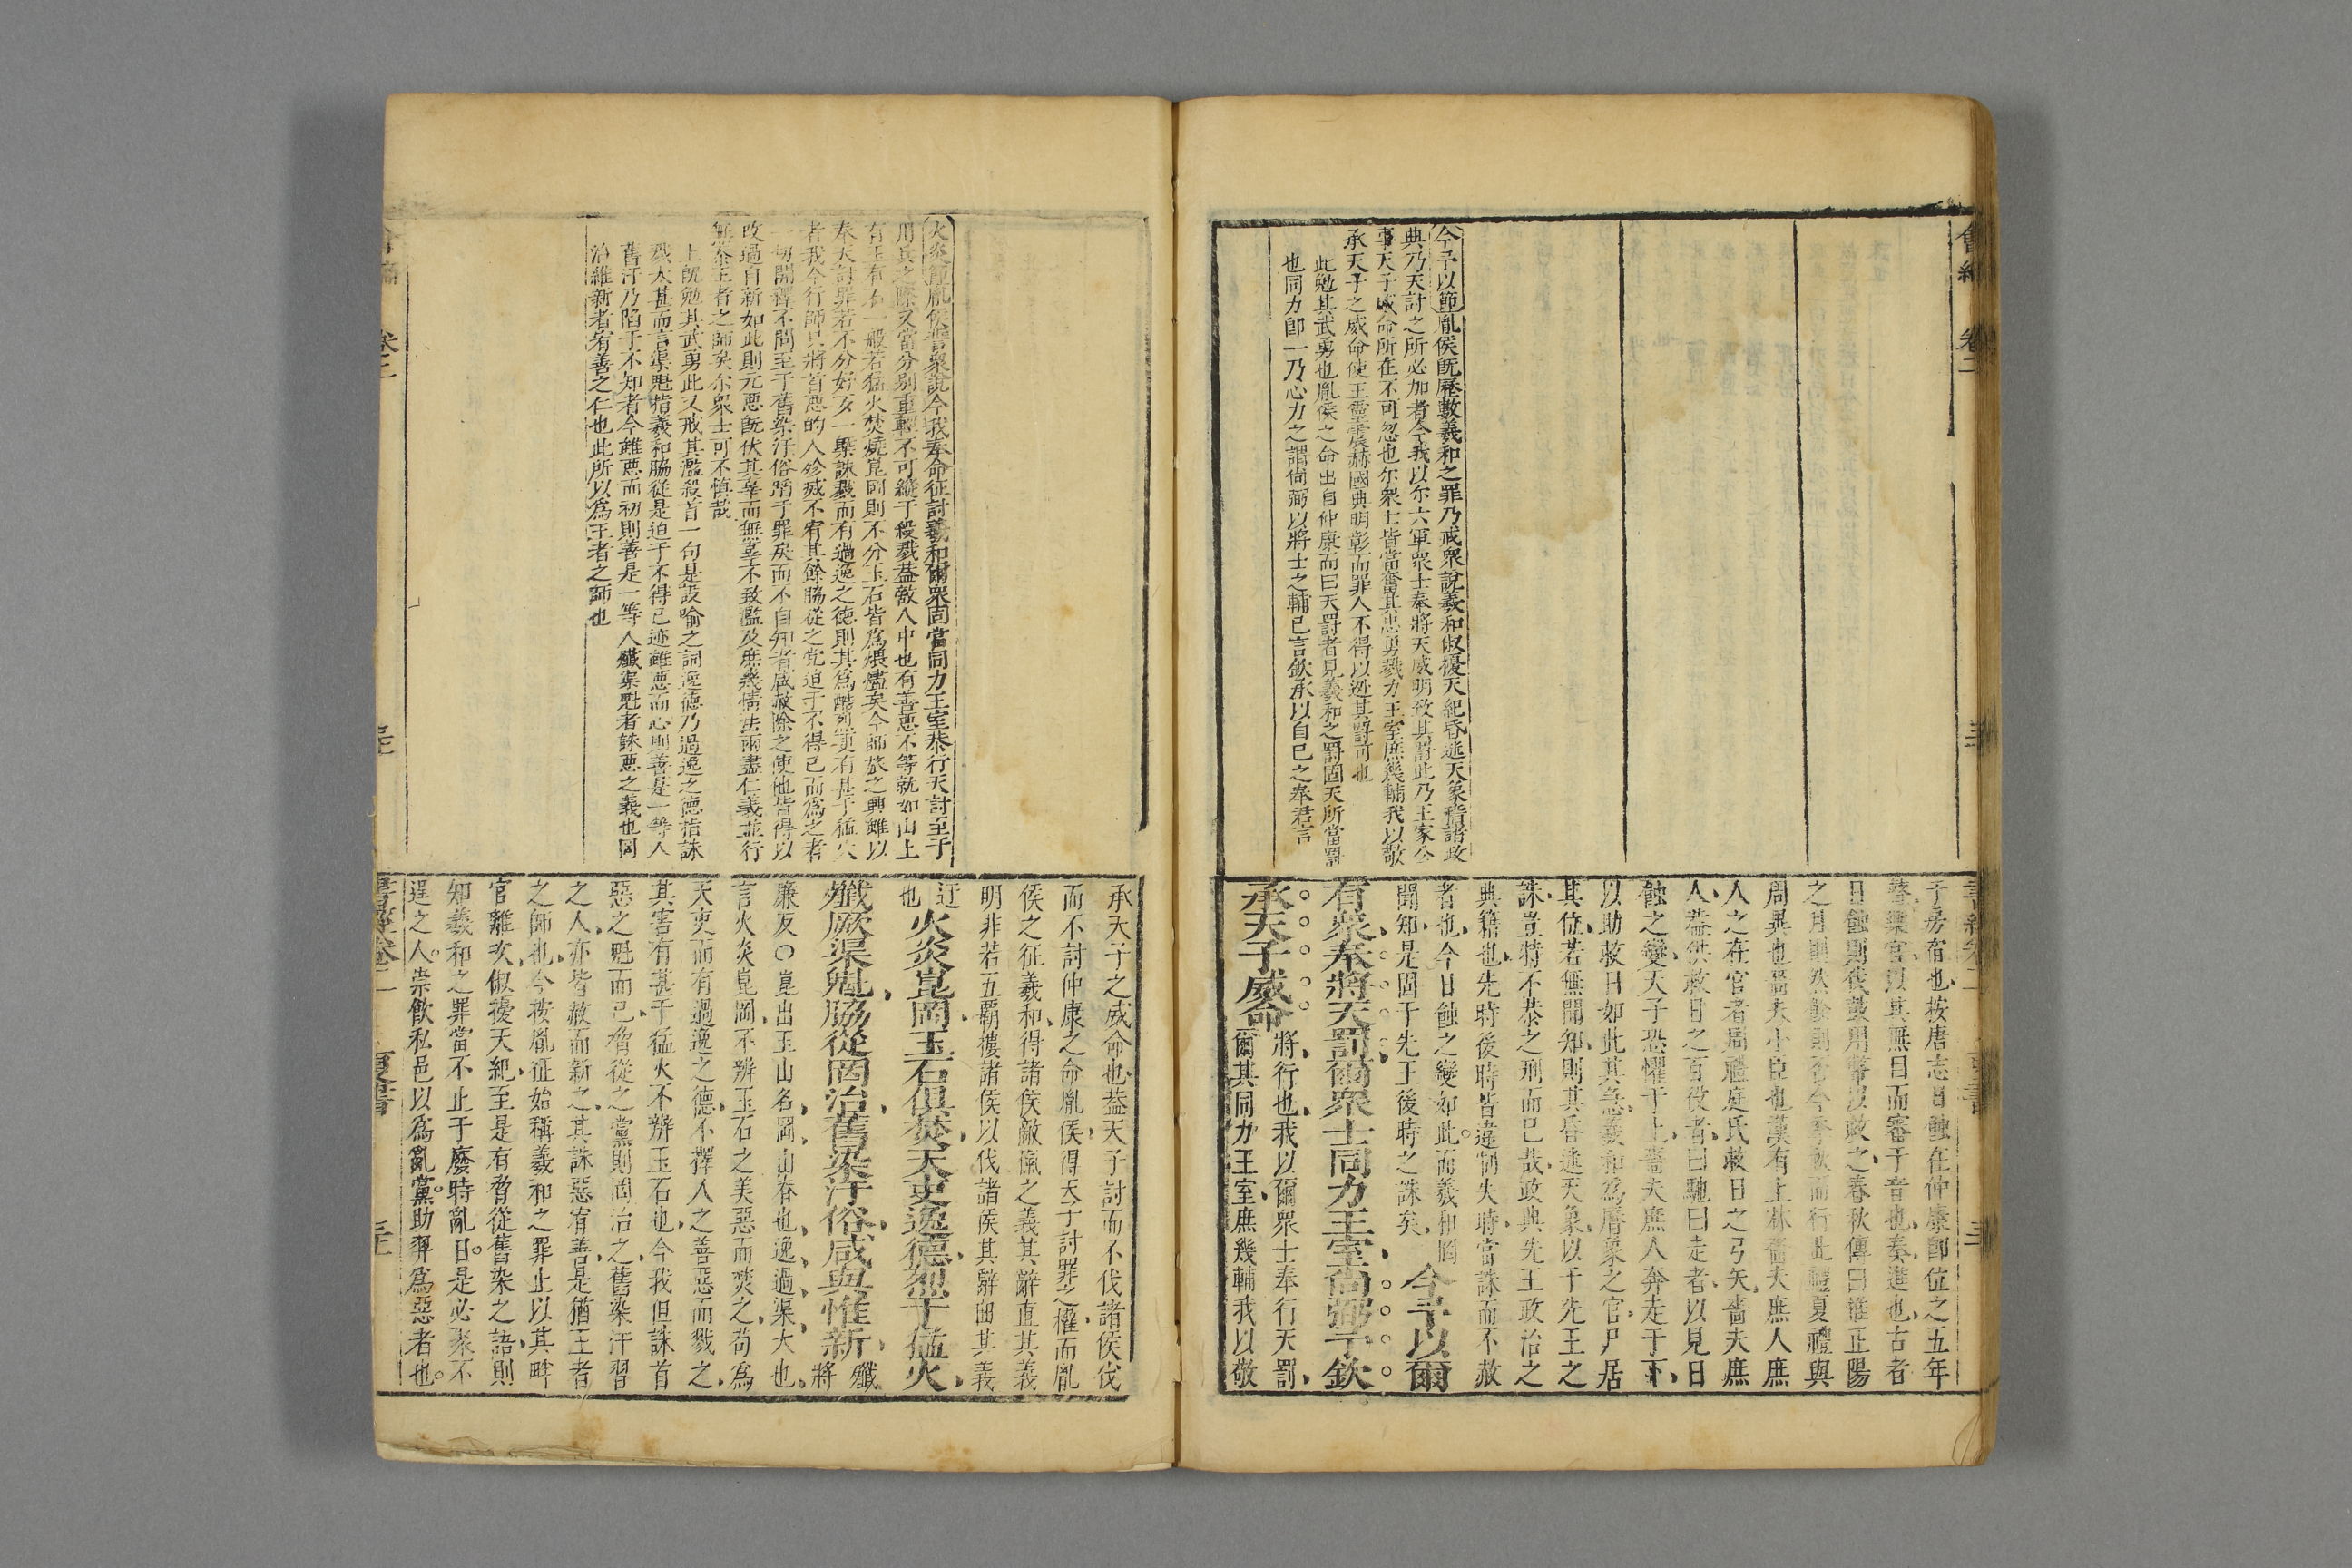 今予以節胤侯既歷數羲和之罪乃戒眾說羲和俶擾天紀昏迷天象揆諸政
典乃天討之所必加者今我以尔六軍眾士奉將天威明致其罸此乃王家公
事天子威命所在不可忽也尔眾士皆當奮其忠勇戮力王室庶幾輔我以敬
承天子之威命使王靈震赫國典明彰而罪人不得以逃其罸可也
此勉其武勇也胤侯之命出自仲康而曰天罸者見羲和之罸固天所當罰
也同力即一乃心力之謂尚弼以將士之輔己言欽承以自己之奉君言
于房宿也按唐志日蝕在仲康即位之五年
瞽樂官以其無目而審于音也奏進也古者
日蝕則伐鼓用幣以救之春秋傳曰惟正陽
之月則然餘則否今季秋而行此禮夏禮與
周異也嗇夫小臣也漢有上林嗇夫庶人庶
人之在官者周禮庭氏救日之弓矢嗇夫庶
人蓋供救日之百役者曰馳曰走者以見日
蝕之變天子恐懼于上嗇夫庶人奔走于下
以助救日如此其急羲和為曆象之官尸居
其位若無聞知則其昏迷天象以干先王之
誅豈特不恭之刑而已哉政典先王政治之
典籍也先時後時皆違制失時當誅而不赦
者也今日蝕之變如此而羲和罔
聞知是固干先王後時之誅矣
今予以爾
有眾奉將天罰爾眾士同力王室尚弼予欽
承天子威命
將行也我以爾眾士奉行天罰
爾其同力王室庶幾輔我以敬
火炎節胤侯誓眾說今我奉命征討羲和爾眾固當同力王室恭行天討至于
用兵之際又當分別重輕不可縱于殺戮蓋敵人中也有善惡不等就如山上
有玉有石一般若猛火焚燒崑岡則不分玉石皆為煨燼矣今師旅之興雖以
奉天討罪若不分好歹一槩誅戮而有過逸之德則其為酷烈更有甚于猛火
者我今行師只將首惡的人殄滅不宥其餘脇從之党迫于不得已而為之者
一切開釋不問至于舊染汙俗陷于罪戾而不自知者咸赦除之使他皆得以
改過自新如此則元惡既伏其辜而無辜不致濫及庶幾情法兩盡仁義並行
無忝王者之師矣尔眾士可不慎哉
上既勉其武勇此又戒其濫殺首一句是設喻之詞逸德乃過逸之德指誅
戮太甚而言渠魁指羲和脇從是迫于不得已迹雖惡而心則善是一等人
舊汙乃陷于不知者今雖惡而初則善是一等人殲渠魁者誅惡之義也罔
治維新者宥善之仁也此所以為王者之師也
承天子之威命也蓋天子討而不伐諸侯伐
而不討仲康之命胤侯得天子討罪之權而胤
侯之征羲和得諸侯敵愾之義其辭直其義
明非若五覇摟諸侯以伐諸侯其辭曲其義
迂
也
火炎崑岡玉石俱焚天吏逸德烈于猛火
殲厥渠魁脇從罔治舊染汙俗咸與惟新
殲
將
廉反〇崑出玉山名岡山脊也逸過渠大也
言火炎崑岡不辨玉石之美惡而焚之苟為
天吏而有過逸之德不擇人之善惡而戮之
其害有甚于猛火不辨玉石也今我但誅首
惡之魁而已脅從之黨則罔治之舊染汙習
之人亦皆赦而新之其誅惡宥善是猶王者
之師也今按胤征始稱羲和之罪止以其畔
官離次俶擾天紀至是有脅從舊染之語則
知羲和之罪當不止于廢時亂日是必聚不
逞之人崇飲私邑以為亂黨助羿為惡者也
書經卷二
夏書